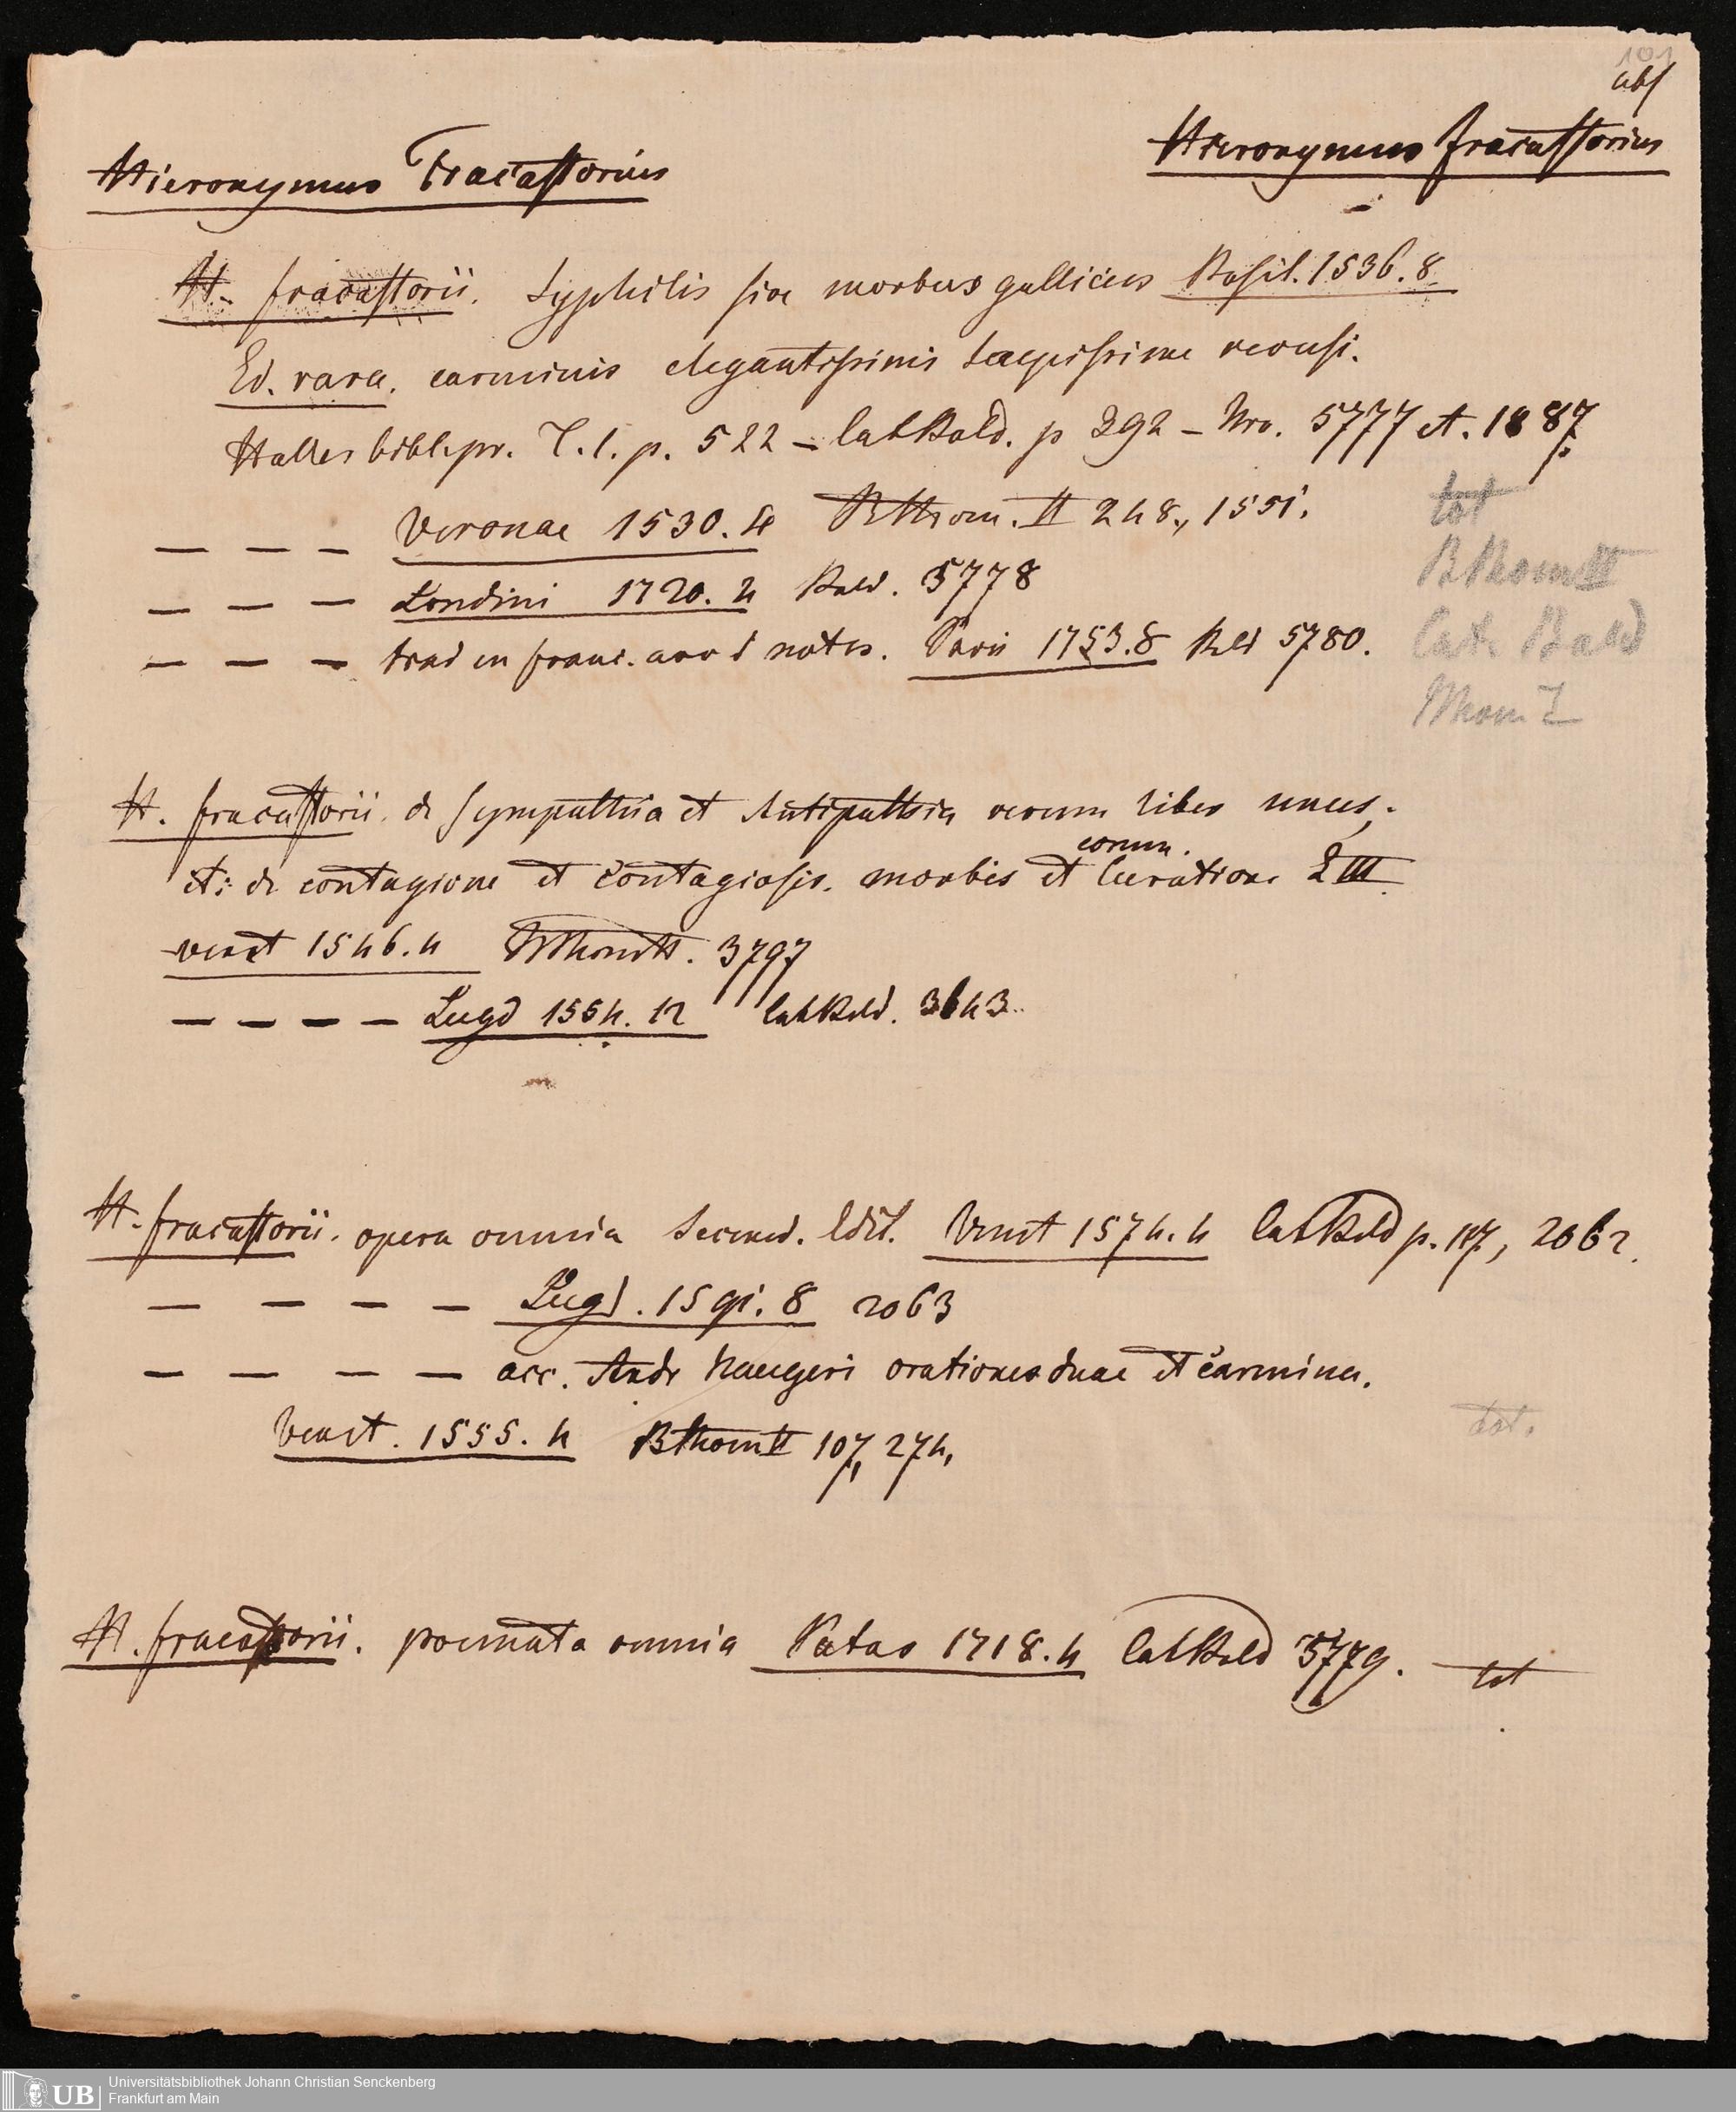 101
abs
Hieronymus Fracastorius
Hieronymus Fracastorius
H. Fracastorii. Syphilis sive morbus gallicus Basil. 1536. 8.
Ed. rara. carminis elegantissimi saepissime recusi.
Haller bibl. pr. T. 1. p. 522 – Cat Bald. p 292 – Nro. 5777 et. 1887
– – – Veronae 1530. 4 BThom. II 248., 1551.
– – – Londini 1720. 4 Bald. 5778
– – – trad en franc. avec d notes. Paris 1753. 8 Bld 5780.
tot
BThom III
Cat. Bald
Thom I
H. Fracastorii. de Sympathia et Antipathia rerum liber unus,.
et: de contagione et contagiosis. morbis et eorum. Curatione L III.
Venet 1546. 4 BThom II. 3797
– – – – Lugd 1554. 12 Cat Bald. 3643.
H. Fracastorii. opera omnia Secund. Edit. Venet 1574. 4 Cat Bald p. 117, 2062.
– – – – Lugd. 1591. 8 2063
– – – – acc. Andr Naugeri orationes duae et carmina.
Venet. 1555. 4 BThom II 107, 274,
tot.
H. Fracastorii. poemata omnia Patav 1718. 4 Cat Bald 5779.
tot
UB
Universitätsbibliothek Johann Christian Senckenberg
Frankfurt am Main